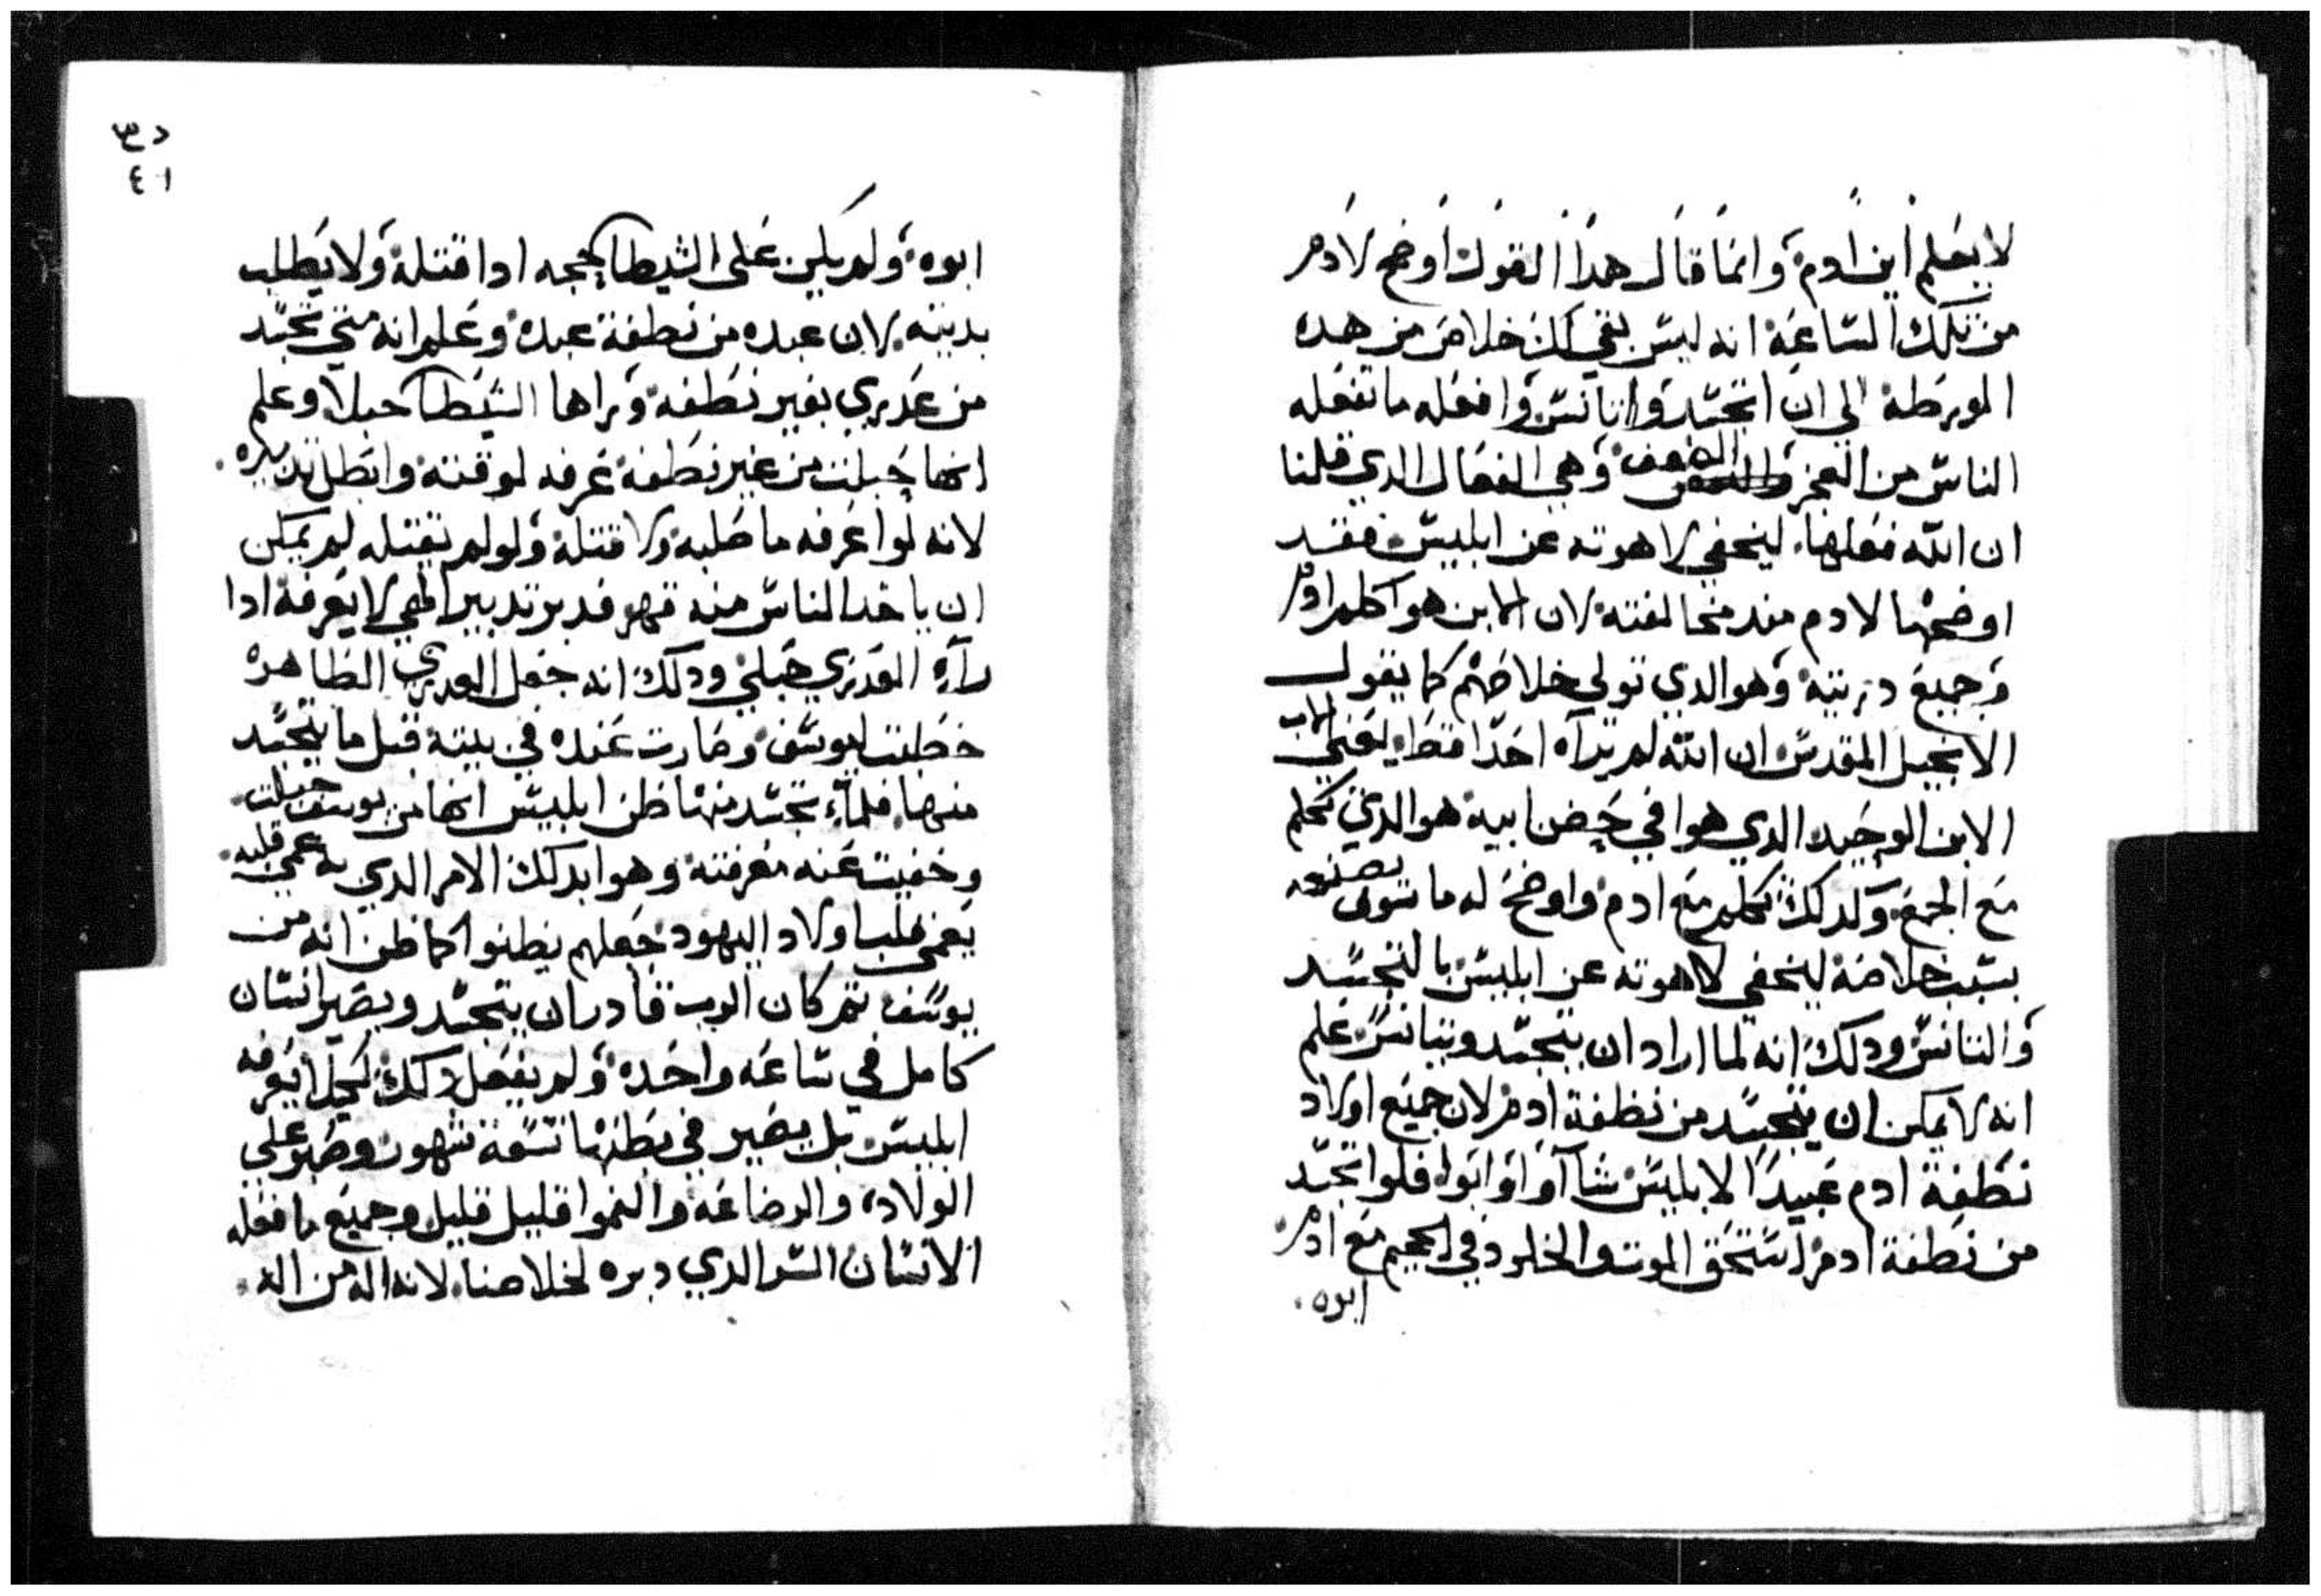 لا يعلم اين ادم وانما قال هدا القول اوضح لادم
من تلك الساعة انه ليس بقي لك خلاص من هده
الورطة الي ان اتجسد واتانس وافعل ما تفعله
الناس من العجز والضعف وهي الفعال الدي قلنا
ان الله فعلها ليخفي لاهوته عن ابليس فقد
اوضحها لادم مند مخالفته لان الابن هو اكلم ادم
وجميع دريته وهو الدي تولي خلاصهم كما يقول
الانجيل المقدس ان الله لم يراه احدا قط يعني الاب
الابن الوحيد الدي هوا في حضن ابيه هو الدي تكلم
مع الجمع وكدلك تكلم مع ادم واوضح له ما سوف يصنعه
بسبب خلاصه ليخفي لاهوته عن ابليس بالتجسد
والتانس ودلك انه لما اراد ان يتجسد ويتانس علم
انه لا يمكن ان يتجسد من نطفة ادم لان جميع اولاد
نطفة ادم عبيدا لابليس شاآوا او ابوا فلوا تجسد
من نطفة ادم لستحق الموت والخلود في الجحيم مع ادم
ابوه
د٣
٤٠١
ابوه ولم يكن على الشيطان حجه ادا قتله ولا يطلب
بديته لان عبده من نطفة عبده وعلم انه متي تجسد
من عدري بغير نطفه وراها الشيطان حبلا وعلم
انها حبلت من غير نطفة عرفه لوقته وابطل تدبيره
لانه لوا عرفه ما صلبه ولا قتله ولو لم يقتله لم يمكن
ان ياخد الناس منه قهر فدبر تدبير الهي لا يعرفه ادا
رآء العدري حبلي ودلك انه جعل العدري الطاهره
خطبت ليوسف وصارت عنده في بيته قبل ما يتجسد
منها فلما تجسد منها ظن ابليس انها من يوسف حبلت
وخفيت عنه معرفته وهوا بدلك الامر الدي به عمي قلبه
يعمي قلب اولاد اليهود جعلهم يظنوا كما ظن انه من
يوسف تم كان الرب قادر ان يتجسد ويصير انسان
كامل في ساعه واحده ولم يفعل دلك ليلا يعرفه
ابليس بل يصير في بطنها تسعة شهور وصبر علي
الولاده والرضاعه والنموا قليل قليل وجميع ما فعله
الانسان السر الدي دبره لخلاصنا لانه اله من اله